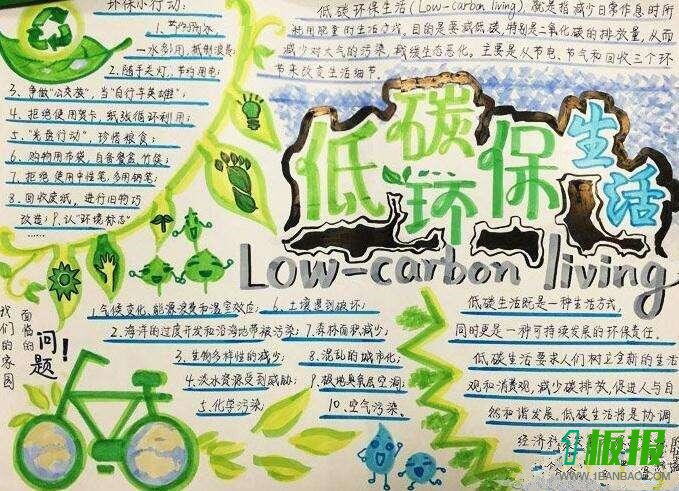 环保小行动:
1、节约用水,
一水多用,抵制浪费
2、随手关灯,节约用电;
3、争做"公交族",当"自行车英雄";
4、拒绝使用贺卡,纸张循环利用;
5、"光盘行动",珍惜粮食;
6、购物用布袋,自备餐盒、竹筷;
7、拒绝使用中性笔,多用钢笔;
8、回收废纸,进行旧物巧
改造;9、认"环境标志"
低碳环保生活(Low-carbon living),就是指减少日常作息时所
耗用能量的生活方式,目的是要减低碳,特别是二氧化碳的排放量,从而
减少对大气的污染,减缓生态恶化。主要是从节电、节气和回收三个环
节来改变生活细节。
低碳环保生活
Low-carbon living
我们的家园
面临的
问题!
1.气候变化、能源浪费和温室效应;
2.海洋的过度开发和沿海地带被污染;
3.生物多样性的减少;
4.淡水资源受到威胁;
5.化学污染
6.土壤遭到破坏;
7.森林面积减少;
8.混乱的城市化;
9.极地臭氧层空洞
10.空气污染。
低碳生活既是一种生活方式,
同时更是一种可持续发展的环保责任。
低碳生活要求人们树立全新的生活
观和消费观,减少碳排放,促进人与自
然和谐发展。低碳生活将是协调
经济社
板报
WWW.1BANBAO.COM